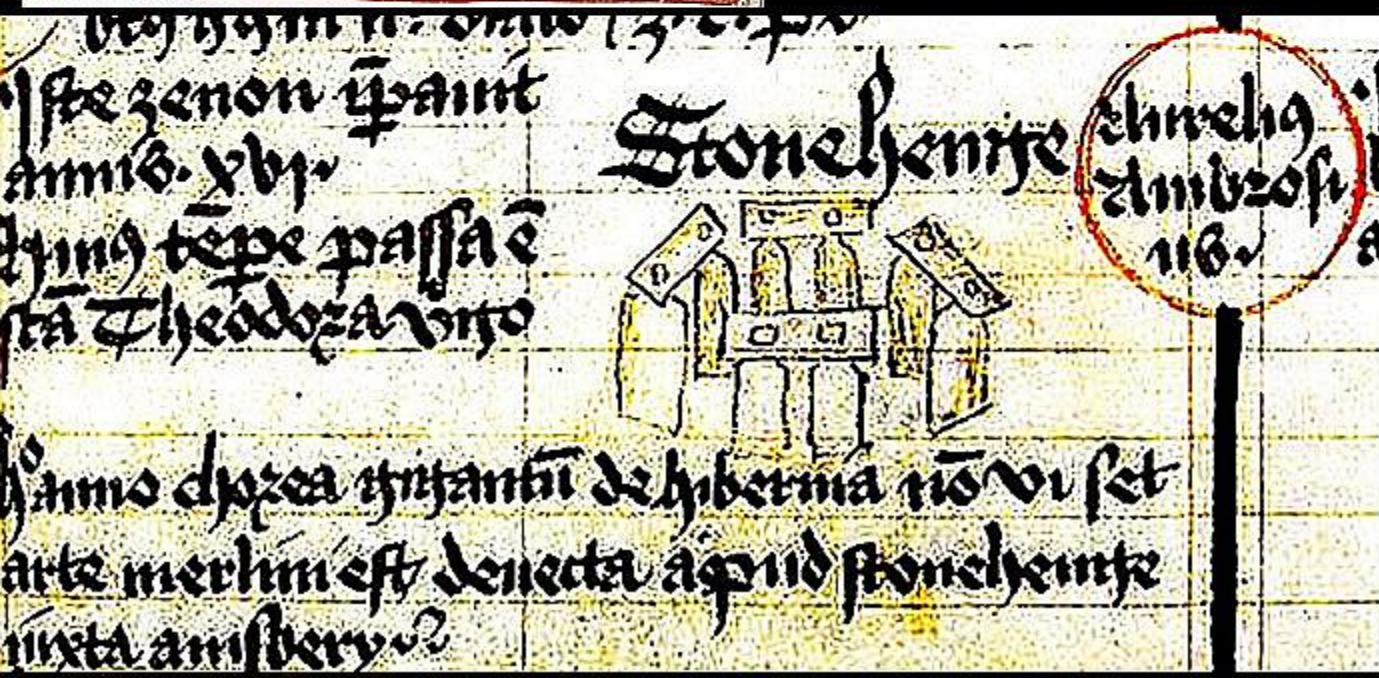 Iste zenon īꝑauit
annis. xvj.
tēꝑe passa ē
Theodora virgo
Stonehenge
Aurelius
Ambrosi
us.
anno chorea gigantū de hibernia nō vi set
arte merlini est deuecta apud stonehenge
iuxta amisbery